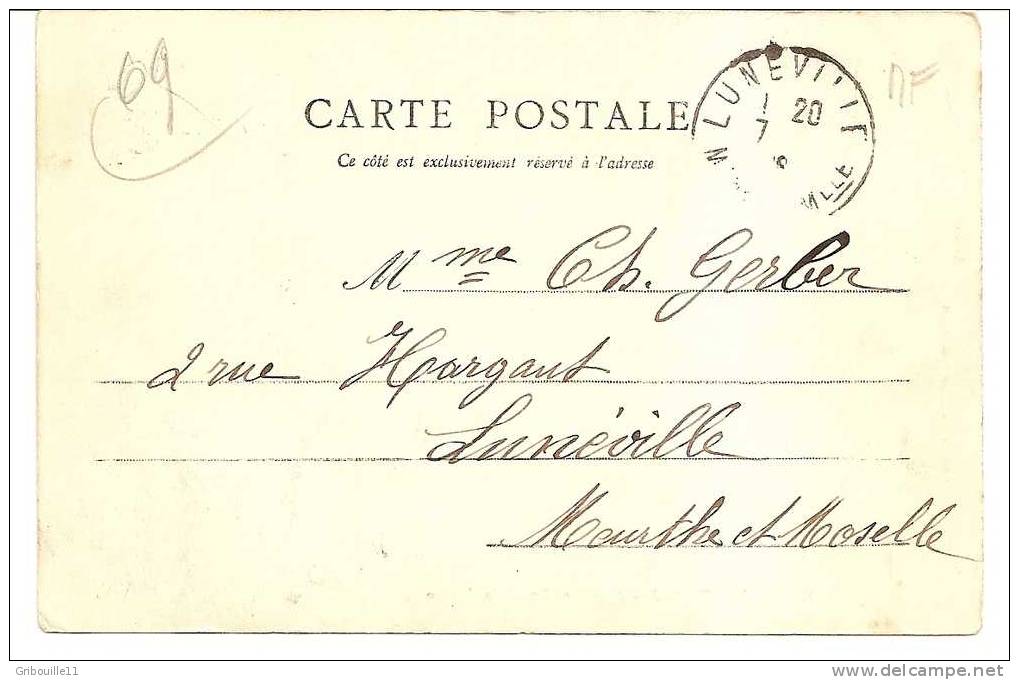 69
CARTE POSTALE
Ce côté est exclusivement réservé à l'adresse
LUNEVI
1 20
7
MLLE
Mme Ch. Gerber
2 rue Hargaut
Lunéville
Meurthe et Moselle
Gribouille11
www.delcampe.net